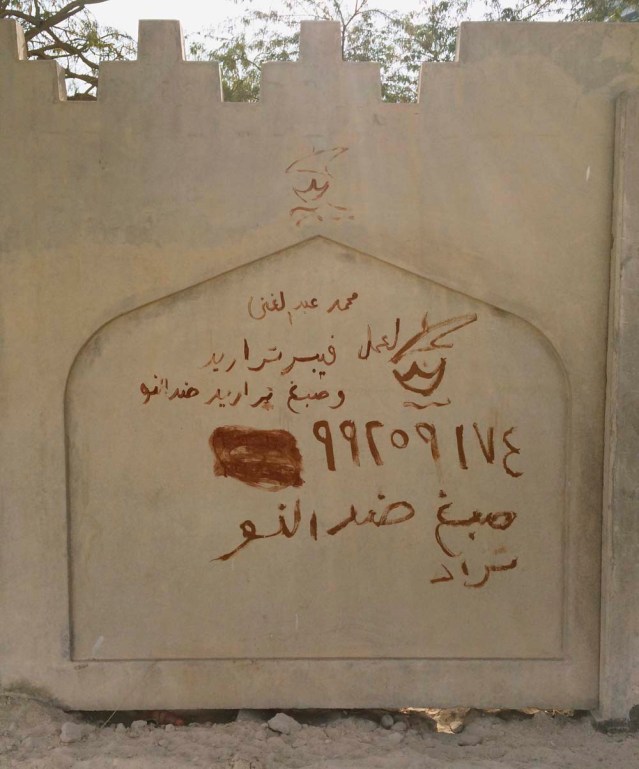 محمد عبد الغني
لعمل فيبر تراريد
وصبغ تراريد ضد النو
٩٩٢٥٩١٧٤
صبغ ضد النو
تراد